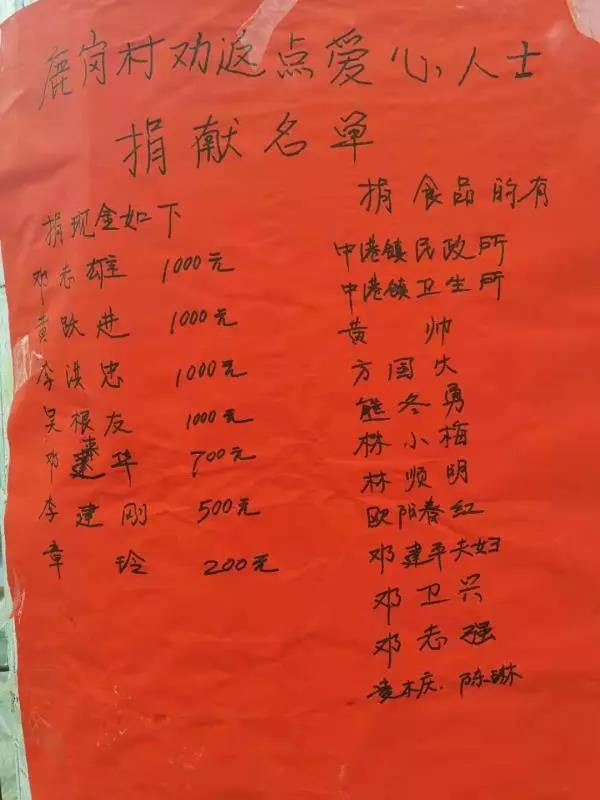 鹿岗村劝返点爱心人士
捐献名单
捐现金如下
邓志雄 1000元
黄跃进 1000元
李淇忠 1000元
吴根友 1000元
邓建华 700元
李建刚 500元
章玲 200元
捐食品的有
中港镇民政所
中港镇卫生所
黄帅
方国火
熊冬勇
林小梅
林顺明
欧阳春红
邓建平夫妇
邓卫兴
邓志强
凌木庆、陈琳